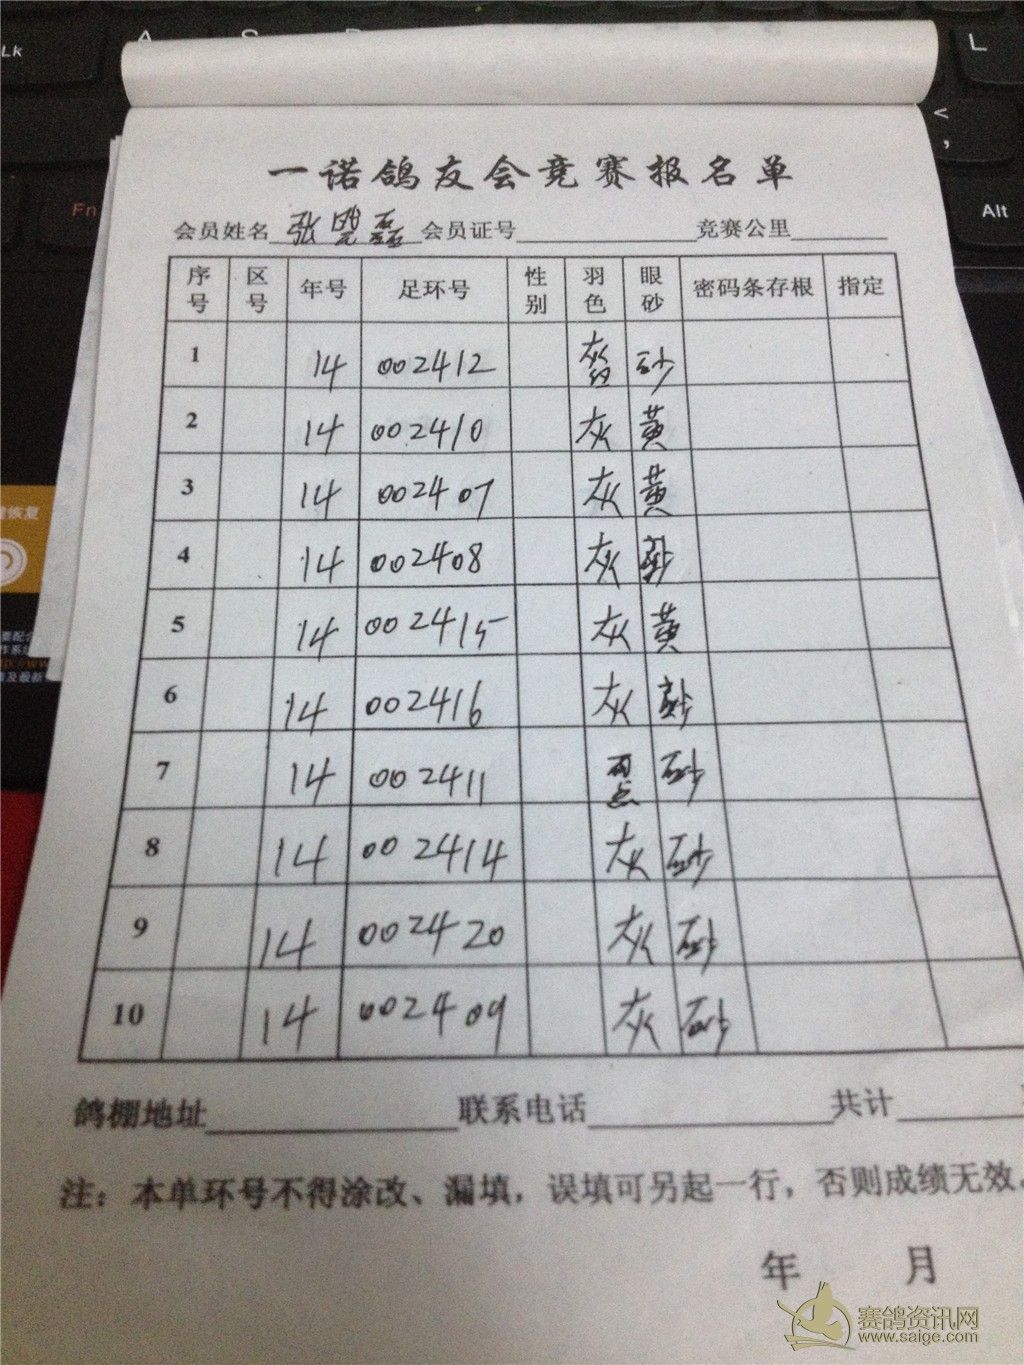 Lk
A
S
D
L
<
,
Fn
Alt
一诺鸽友会竞赛报名单
会员姓名 张晓磊 会员证号 竞赛公里
序号 区号 年号 足环号 性别 羽色 眼砂 密码条存根 指定
1 14 002412 砂
2 14 002410 灰 黄
3 14 002407 灰 黄
4 14 002408 灰
5 14 002415 灰 黄
6 14 002416 灰
7 14 002411 雨点 砂
8 14 002414 灰 砂
9 14 002420 灰 砂
10 14 002409 灰 砂
鸽棚地址 联系电话 共计
注：本单环号不得涂改、漏填，误填可另起一行，否则成绩无效。
年 月
赛鸽资讯网
www.saige.com